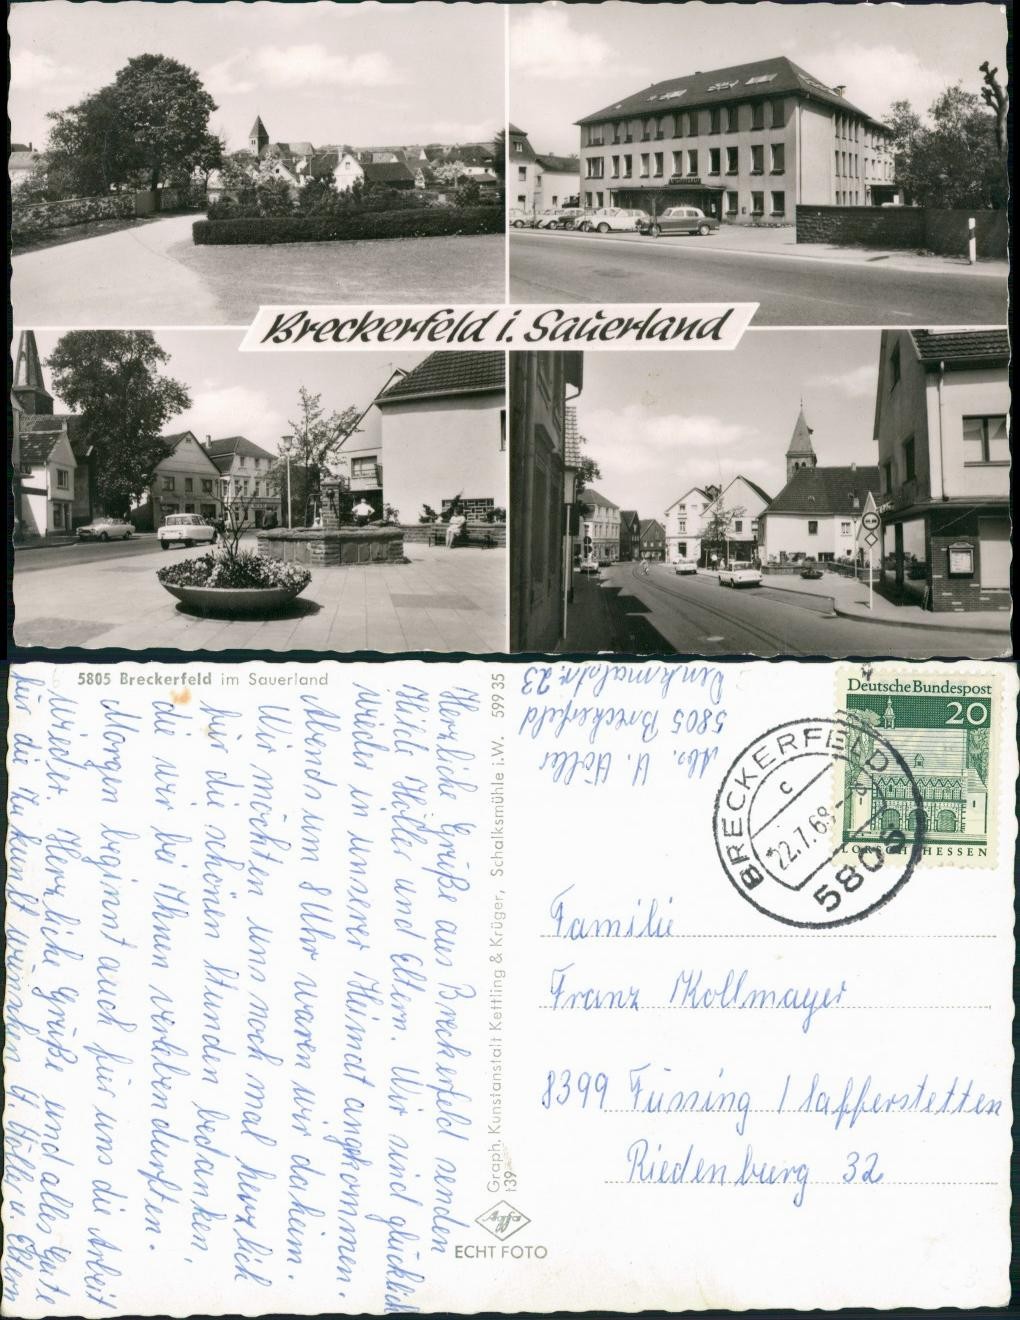 Breckerfeld i. Sauerland
5805 Breckerfeld im Sauerland
Herzliche Grüße aus Breckerfeld senden
Hilde Höller und Eltern. Wir sind glücklich
wieder in unserer Heimat angekommen.
Abends um 8 Uhr waren wir daheim.
Wir möchten uns noch mal herzlich
für die schönen Stunden bedanken,
die wir bei Ihnen verleben durften.
Morgen beginnt auch für uns die Arbeit
wieder. Herzliche Grüße und alles Gute
für die Zukunft wünschen H. Höller u. Eltern
Graph. Kunstanstalt Kettling & Krüger, Schalksmühle i.W. 599 35
139
Agfa
ECHT FOTO
Abs. H. Höller
5805 Breckerfeld
Denkmalstr. 23
BRECKERFELD
c c
22.7.68
5805
Deutsche Bundespost
20
LORSCH/HESSEN
Familie
Franz Kollmayer
8399 Füssing / Safferstetten
Riedenburg 32